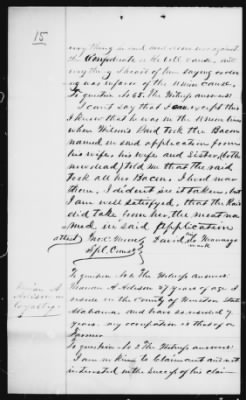 15
any thing he said and done was against
the Confederate or Rebel cause. and
every thing I heard of him saying or do
ing was in favor of the Union cause.
To question No 65. The Witness answers
I can't say that I can, except this
I know that he was in the Union lines
when Wilson's Raid took the Bacon
named in said application from
his wife, his wife and Sister, (both
now dead) told me that the said
took all his Bacon, I lived near
them. I did'ent see it taken, but
I am well satisfied, that the Raid
did take from her, the meat na
med in said application
attest David his
mark
Spl. Comr.
Marion A
Adison on
loyalty.
To question No 1 the Witness answers
Marion A Adison 37 years of age I
reside in the County of Winston State
Alabama and have so resided 7
years. my occupation is that of a
Farmer
To question No 2 The Witness answers
I am no kin to Claimant and not
interested in the success of his claim